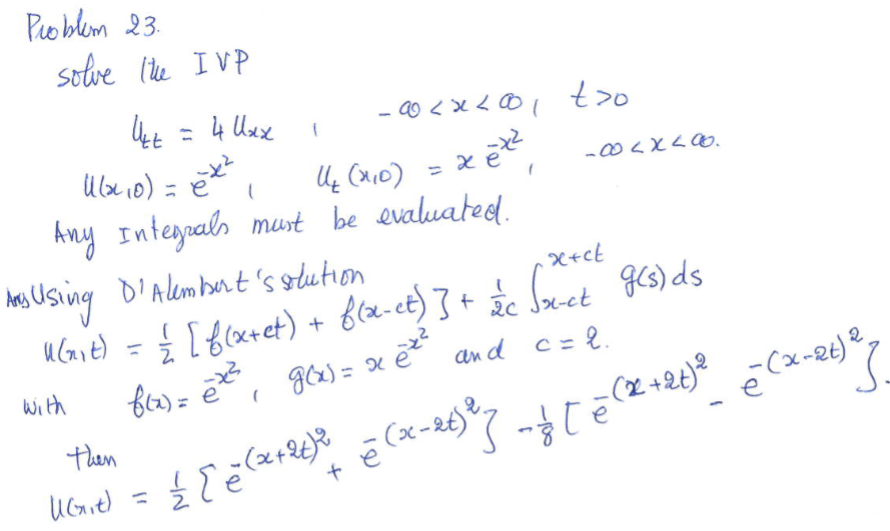 Problem 23.
solve the IVP
u_tt = 4 u_xx , -∞ < x < ∞, t > 0
u(x,0) = e^{-x^2}, u_t(x,0) = x e^{-x^2}, -∞ < x < ∞.
Any Integrals must be evaluated.
Ans Using D'Alembert's solution
u(x,t) = 1/2 [f(x+ct) + f(x-ct)] + 1/2c ∫_{x-ct}^{x+ct} g(s) ds
with f(x) = e^{-x^2}, g(x) = x e^{-x^2} and c = 2.
then
u(x,t) = 1/2 [e^{-(x+2t)^2} + e^{-(x-2t)^2}] - 1/8 [e^{-(x+2t)^2} - e^{-(x-2t)^2}].